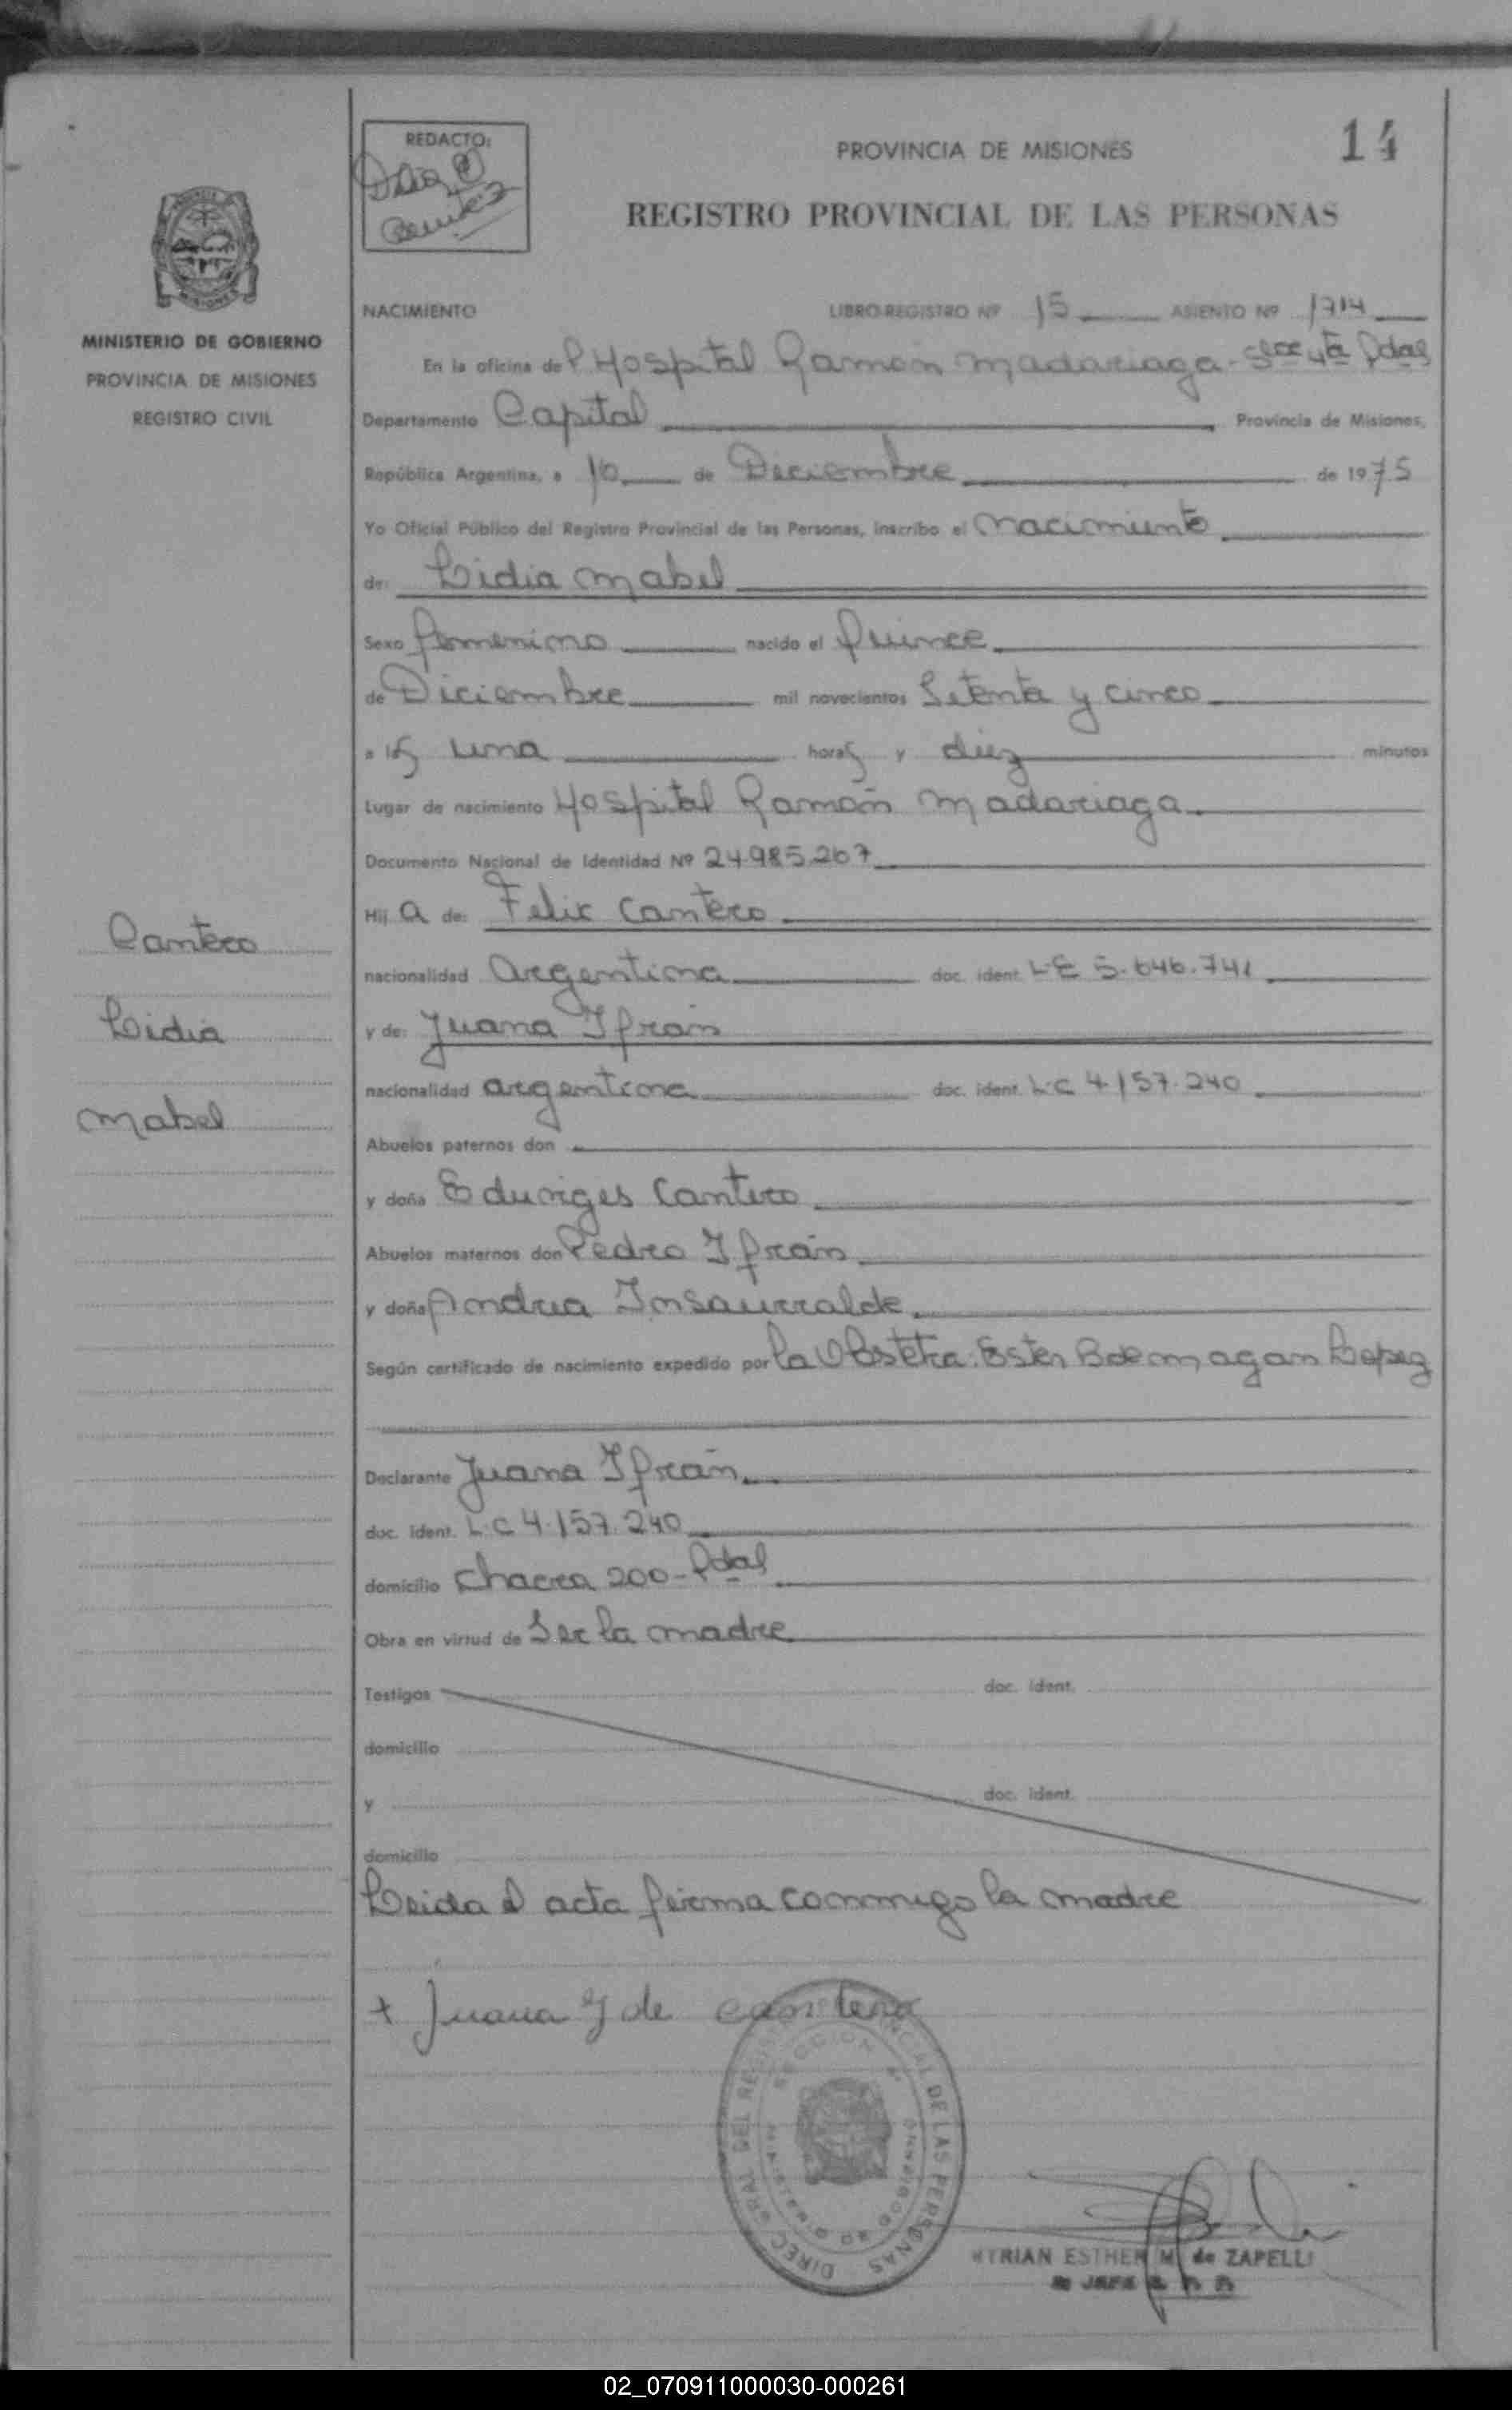 REDACTO:
Benitez
PROVINCIA DE MISIONES
14
REGISTRO PROVINCIAL DE LAS PERSONAS
MINISTERIO DE GOBIERNO
PROVINCIA DE MISIONES
REGISTRO CIVIL
NACIMIENTO LIBRO-REGISTRO Nº 15 ASIENTO Nº 1714
En la oficina de Hospital Ramón Madariaga - Secc 4ta Pdas
Departamento Capital Provincia de Misiones,
República Argentina, a de Deciembre de 1975
Yo Oficial Público del Registro Provincial de las Personas, inscribo el Nacimiento
de: Lidia Mabel
Sexo femenino nacido el quince
de Diciembre mil novecientos Setenta y cinco
a las una horas y diez minutos
Lugar de nacimiento Hospital Ramón Madariaga
Documento Nacional de Identidad Nº 24.985.267
Hij a de: Felix Cantero
nacionalidad Argentina doc. ident. L E 5.646.741
y de: Juana Ifrán
nacionalidad argentina doc. ident. L.C 4.157.240
Abuelos paternos don
y doña Eduviges Cantero
Abuelos maternos don Pedro Ifrán
y doña Andrea Insaurralde
Según certificado de nacimiento expedido por la Obstetra: Ester B de Magan Lopez
Declarante Juana Ifrán
doc. ident. L.C 4.157.240
domicilio Chacra 200 - Pdas
Obra en virtud de Ser la madre
Testigos doc. ident.
domicilio
y doc. ident.
domicilio
Leida el acta firma conmigo la madre
+ Juana I de cantero
Cantero
Lidia
Mabel
DIREC. GRAL. DEL REGISTRO PROVINCIAL DE LAS PERSONAS
SECCION 4ª
MINISTERIO DE GOBIERNO
MYRIAN ESTHER M. de ZAPELLI
JEFE
02_070911000030-000261